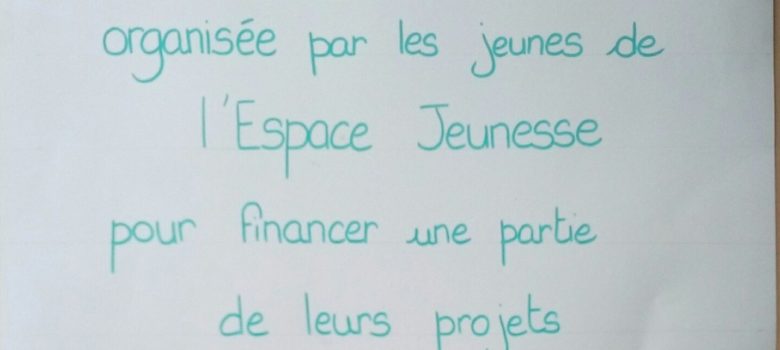 organisée par les jeunes de
l'Espace Jeunesse
pour financer une partie
de leurs projets